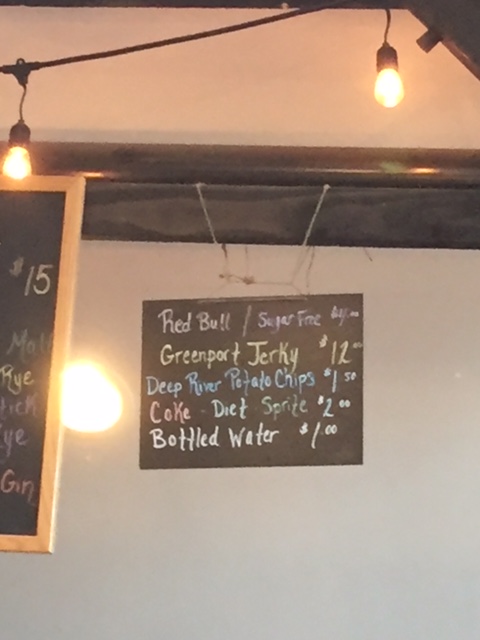 $15
Rye
Gin
Red Bull / Sugar Free
Greenport Jerky $12.00
Deep River Potato Chips $1.50
Coke Diet Sprite $2.00
Bottled Water $1.00